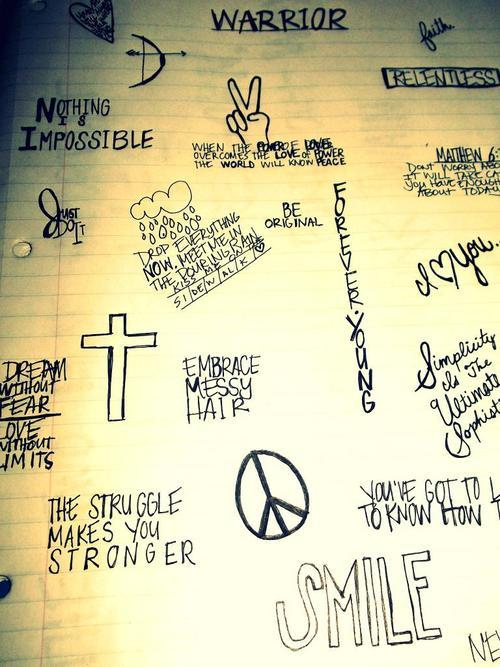 WARRIOR
faith
RELENTLESS
NOTHING
IS
IMPOSSIBLE
WHEN THE POWER OF LOVE
OVERCOMES THE LOVE OF POWER
THE WORLD WILL KNOW PEACE
MATTHEW 6:
DONT WORRY
IT WILL TAKE CA
YOU HAVE ENOUGH
ABOUT TODAY
JUST
DO IT
DROP EVERYTHING
NOW. MEET ME IN
THE POURING RAIN
KISS ME ON THE
SIDEWALK
BE
ORIGINAL
FOREVER YOUNG
I ♡ You.
Simplicity
Is The
Ultimate
Sophist
DREAM
WITHOUT
FEAR
LOVE
WITHOUT
LIMITS
EMBRACE
MESSY
HAIR
THE STRUGGLE
MAKES YOU
STRONGER
YOU'VE GOT TO L
TO KNOW HOW T
SMILE
NE